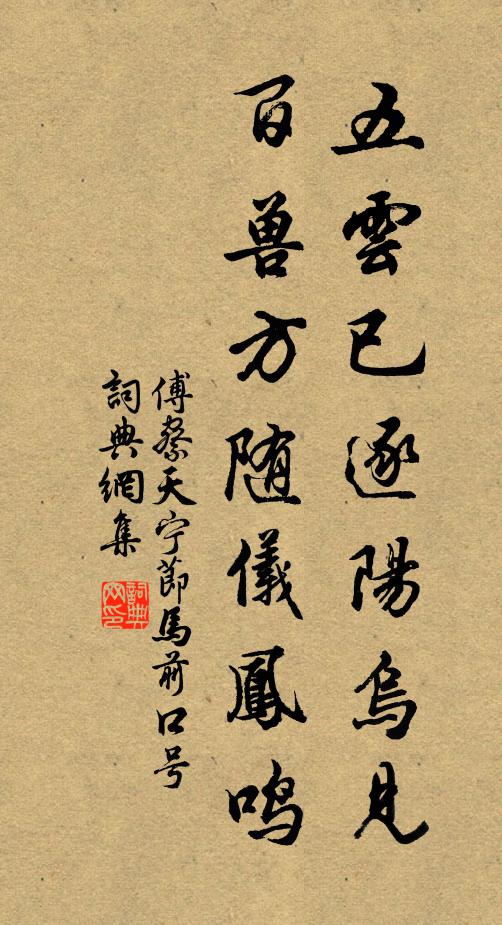 五雲已逐陽烏見
百兽方随儀鳳鳴
傅察天宁節馬前口号
詞典網集
詞典
网印